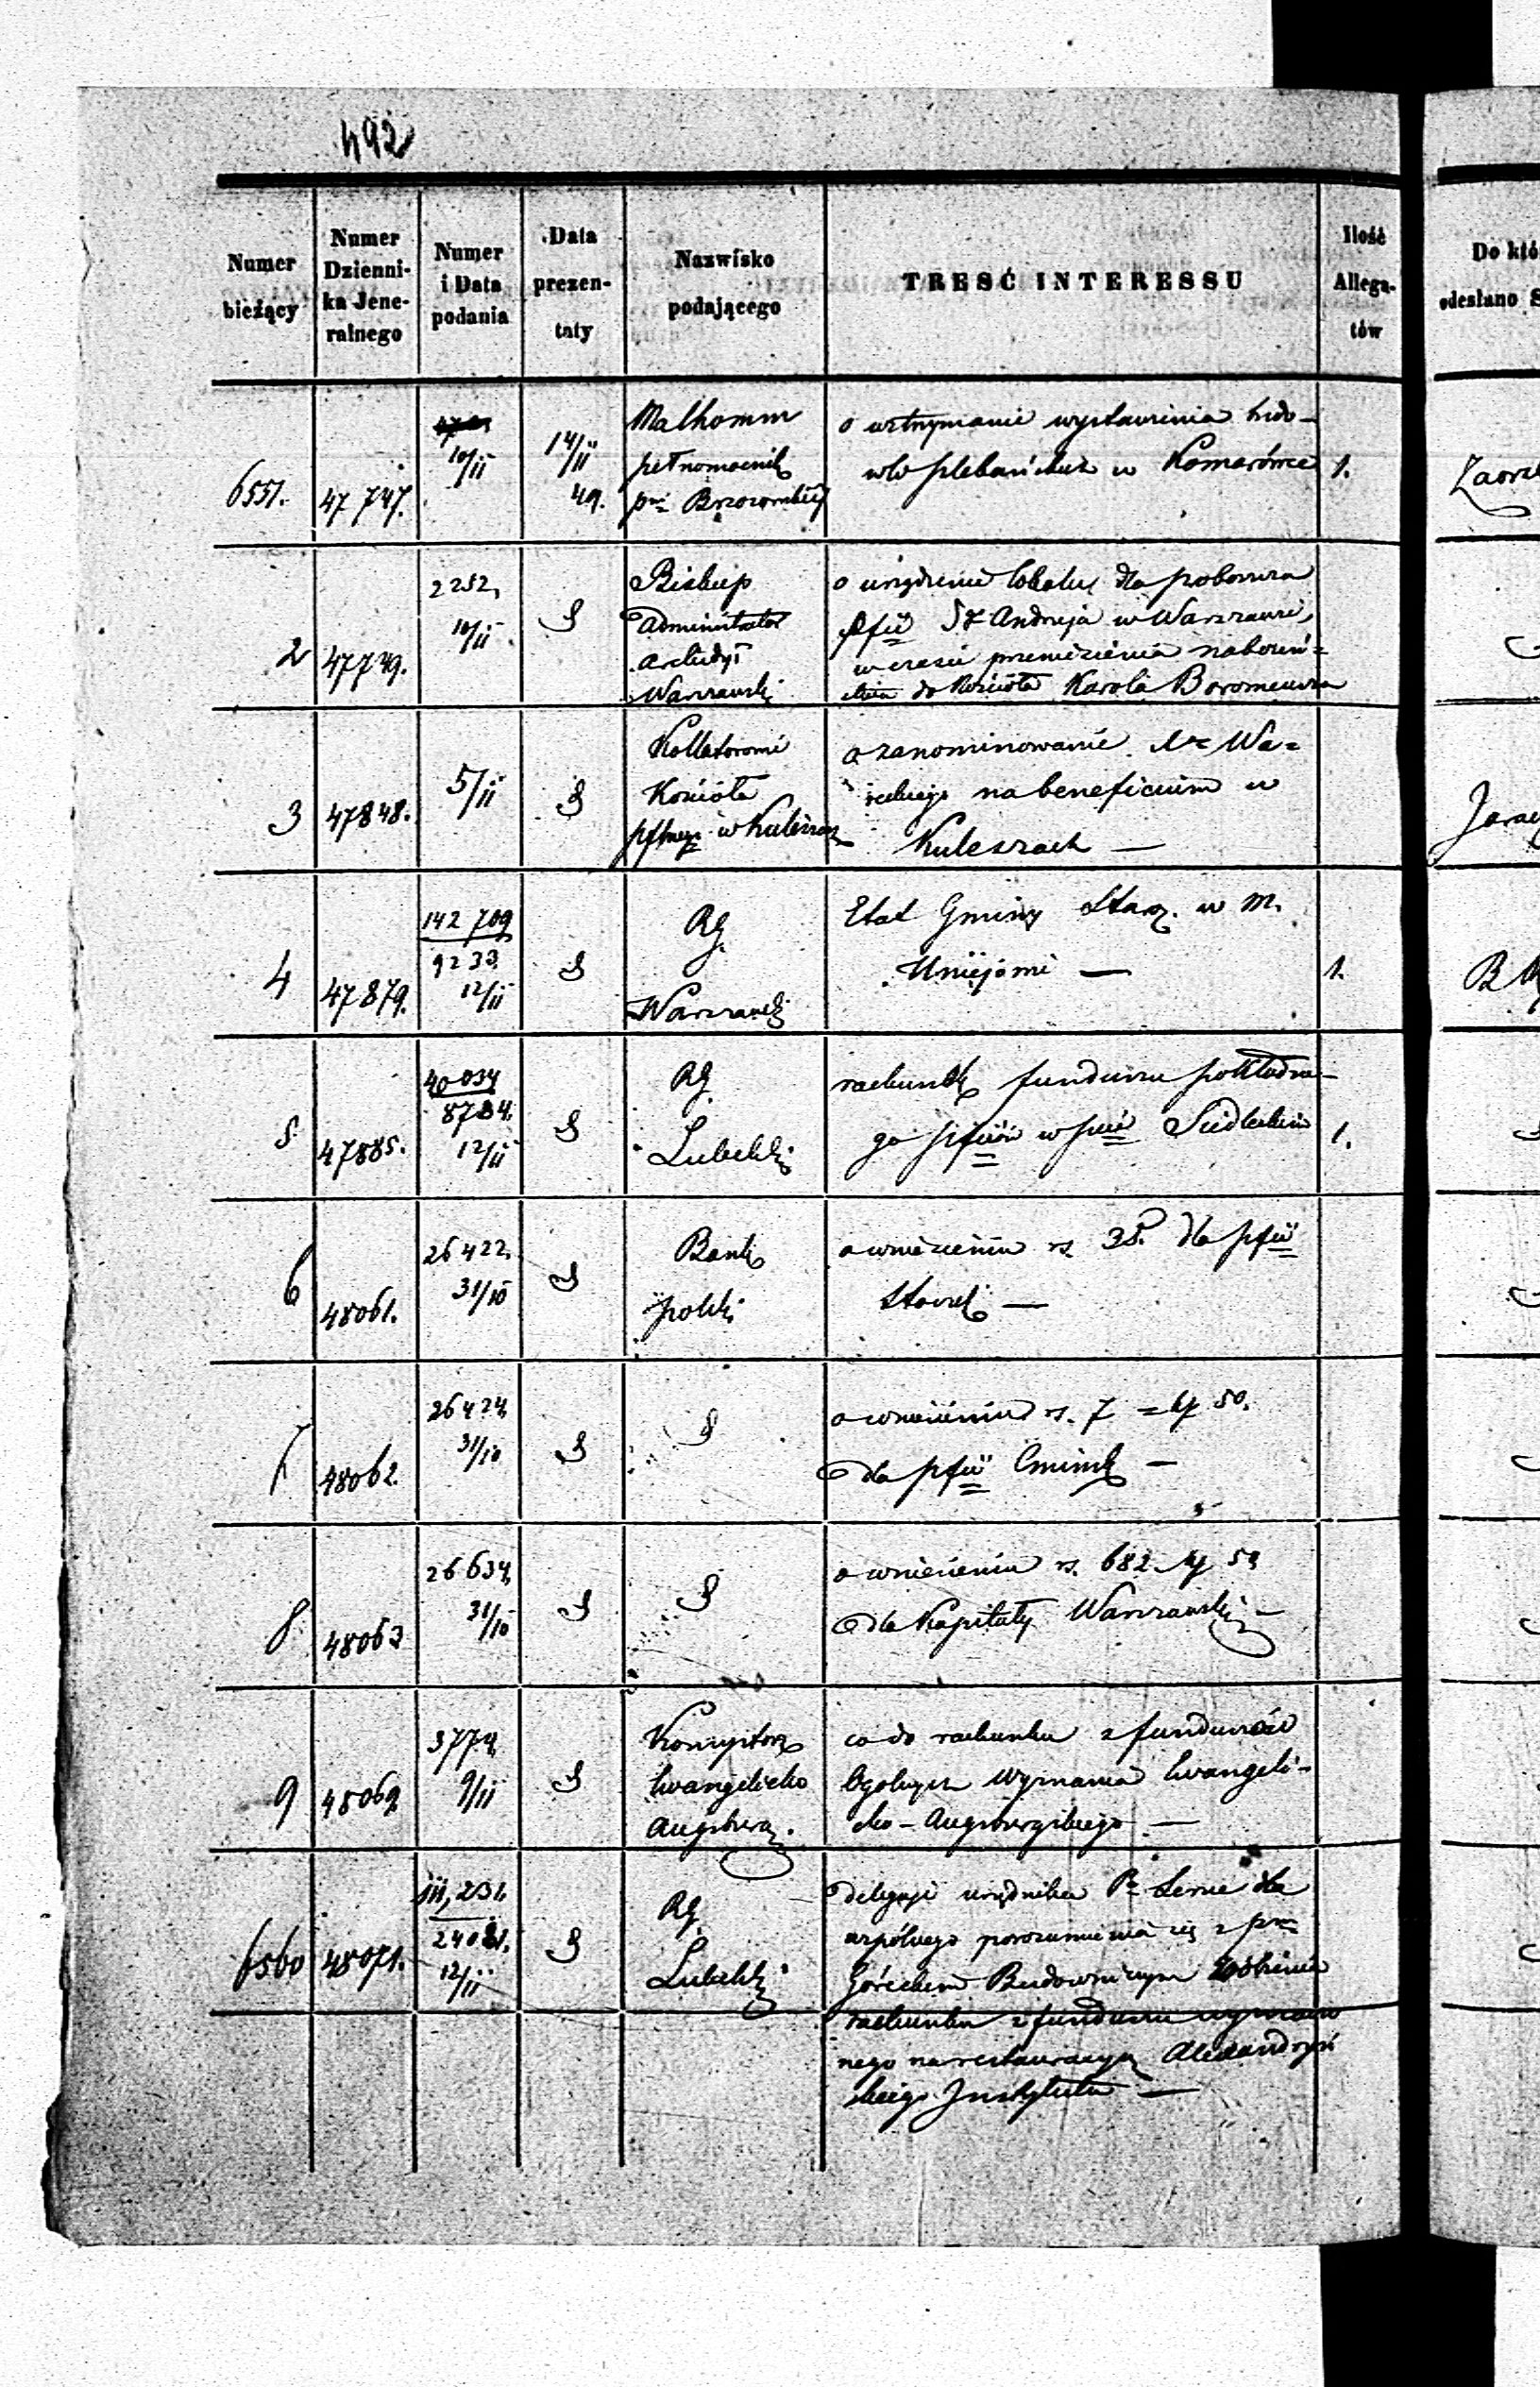 492
Numer bieżący
Numer Dzienni-ka Jene-ralnego
Numer i Data podania
Data prezen-taty
Nazwisko podającego
TREŚĆ INTERESSU
Ilość Allega-tów
Do któ
odesłano S
6551. 47747. 10/11 14/11 49. Malhomm
pełnomocnik
pni Brzozowskiej
o wstrzymanie wystawienia budo-
wli plebańskich w Komarówce 1.
2 47779. 2252, 10/11 Biskup
Administrator
Archidyi
Warszawski
o urządzenie lokalu dla proboszcza
pfii St Andrzeja w Warszawie,
w czasie przeniesienia nabożeń=
stwa do Kościoła Karola Boromeusza
3 47848. 5/11 Kollatorowie
Kościoła
w Kuleszach
o zanominowanie Xa Wa=
na beneficium w
Kuleszach —
4 47879. 142709 9233 12/11 RG.
Warszawski
Etat Gminy Staroz. w M.
Uniejowie — 1.
5 47885. 40034 8734. 12/11 RG.
Lubelski
rachunek funduszu pokładne-
go 1.
6 48061. 26422, 31/10 Bank
polski
o wniesieniu rs. 38. dla pfii
7 48062. 26424, 31/10
o wniesieniu rs. 7 = k 50.
dla pfii Cmińsk —
8 48063 26634, 31/10
o wniesieniu rs. 682 k 59
dla Kapituły Warszawskiej —
9 48069 3774, 9/11 Konsystorz
Ewangelicko
Augsburg.
co do rachunku z funduszów
Ogólnych Wyznania Ewangelic-
cko-Augsburgskiego —
6560 48071. 111,231. 24081. 12/11 RG.
Lubelski
urzędnika Pa dla
wspólnego porozumienia się z pm
Góreckim Budowniczym zrobienia
rachunku z funduszu
nego na restauracyą Alexandryń
skiego Instytutu —
Zaorsk